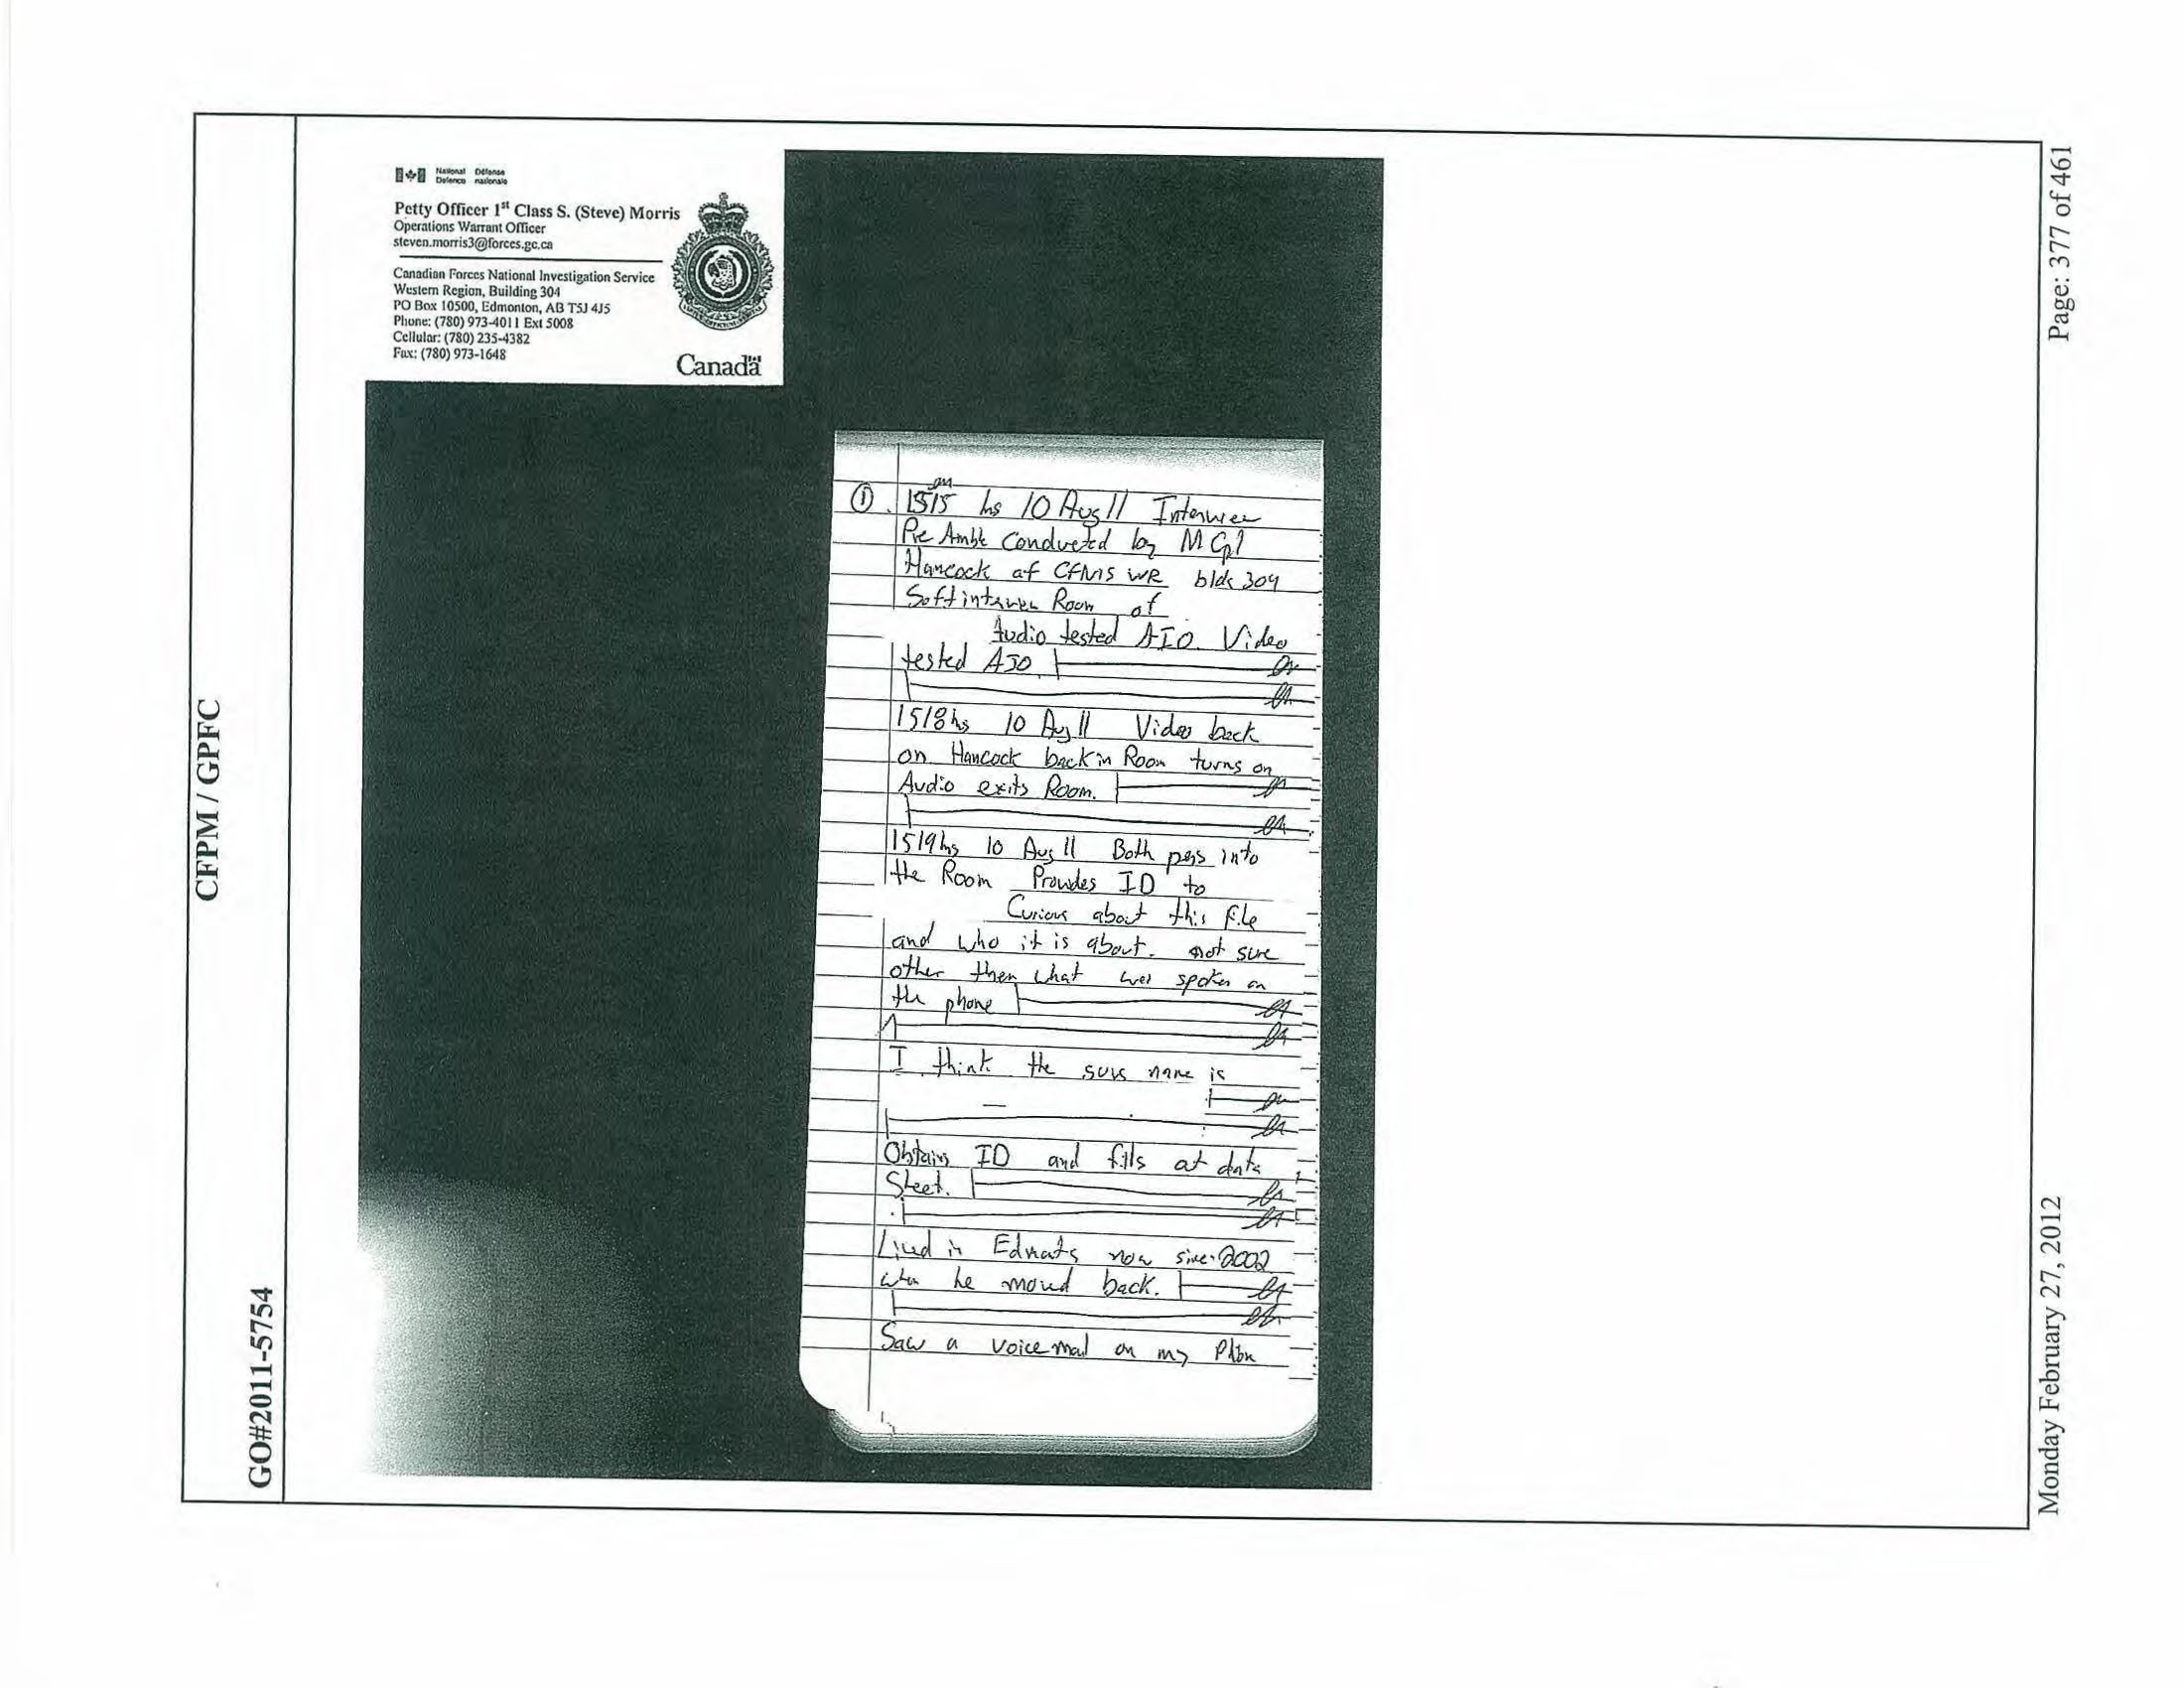 CFPM / GPFC
GO#2011-5754
National Défense
Defence nationale
Petty Officer 1st Class S. (Steve) Morris
Operations Warrant Officer
steven.morris3@forces.gc.ca
Canadian Forces National Investigation Service
Western Region, Building 304
PO Box 10500, Edmonton, AB T5J 4J5
Phone: (780) 973-4011 Ext 5008
Cellular: (780) 235-4382
Fax: (780) 973-1648
Canada
① 1515 hs 10 Aug 11 Interview
Pre Amble Conducted by MCpl
Hancock at CFNIS WR bldg 304
Soft interview Room of
Audio tested AIO. Video
tested AIO
1518hs 10 Aug 11 Video back
on Hancock back in Room turns on
Audio exits Room.
1519hs 10 Aug 11 Both pers into
the Room Provides ID to
Curious about this file
and who it is about. not sure
other then what was spoken on
the phone
I think the guys name is
Obtains ID and fills out data
Sheet.
Lived in now since 2002
when he moved back.
Saw a voicemail on my
Page: 377 of 461
Monday February 27, 2012